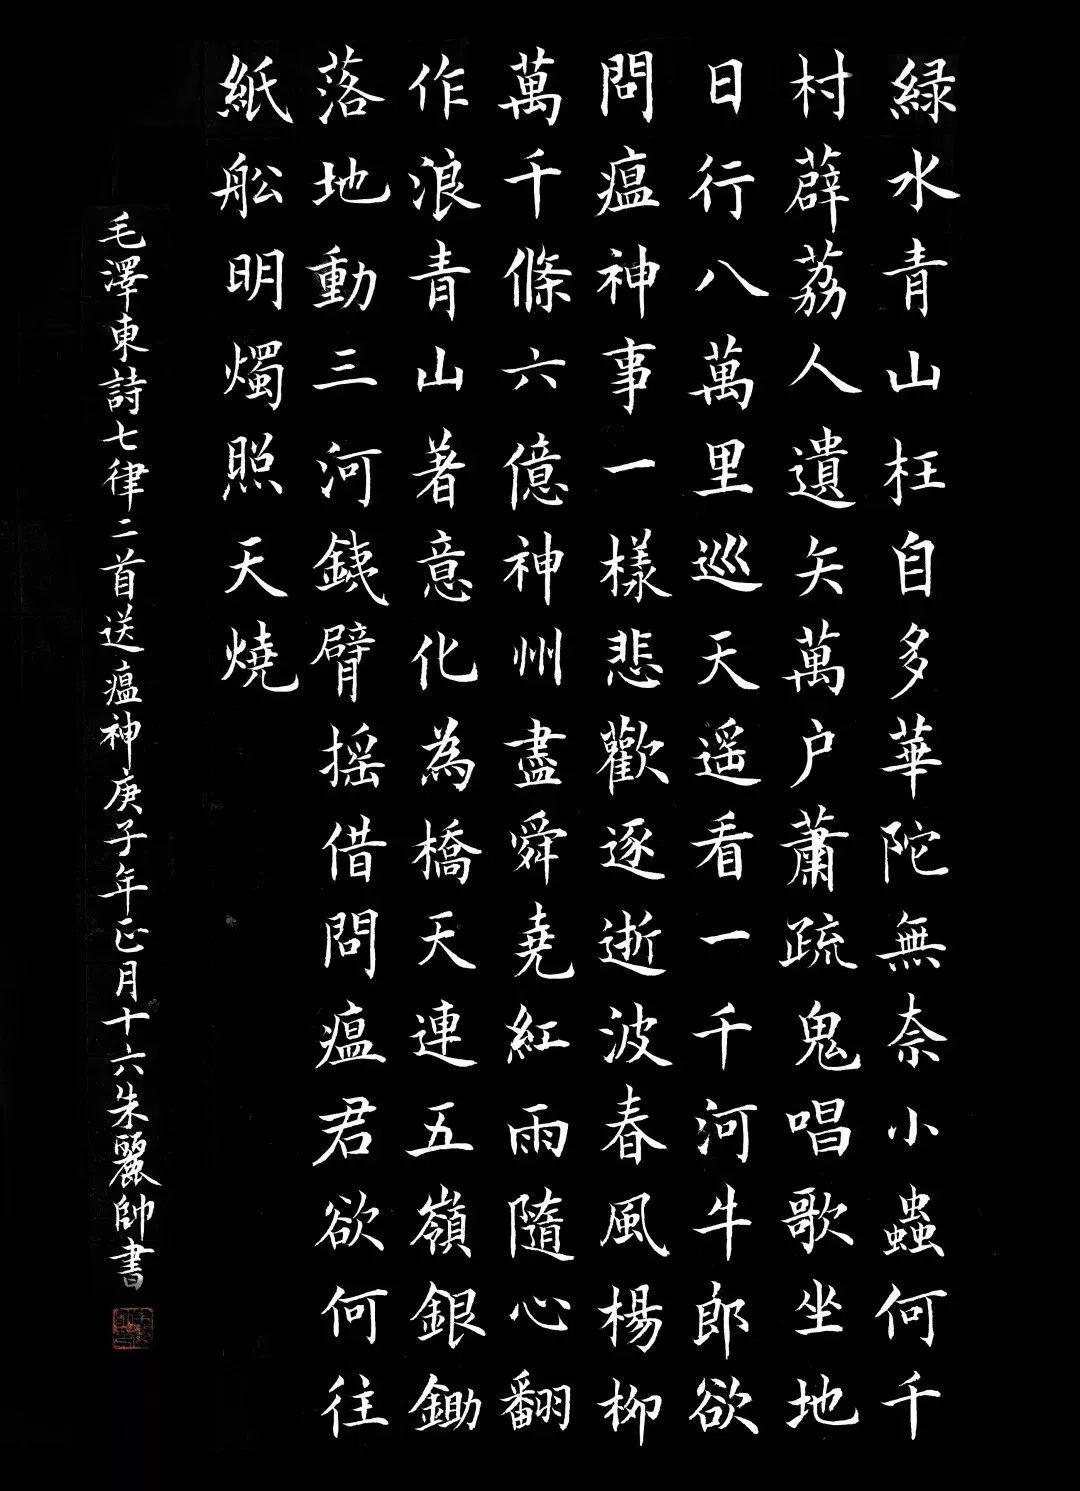 緑水青山枉自多華陀無奈小蟲何千
村薜荔人遺矢萬户蕭疏鬼唱歌坐地
日行八萬里巡天遥看一千河牛郎欲
問瘟神事一樣悲歡逐逝波春風楊柳
萬千條六億神州盡舜堯紅雨隨心翻
作浪青山著意化為橋天連五嶺銀鋤
落地動三河鐵臂摇借問瘟君欲何往
紙船明燭照天燒
毛澤東詩七律二首送瘟神庚子年正月十六朱麗帥書